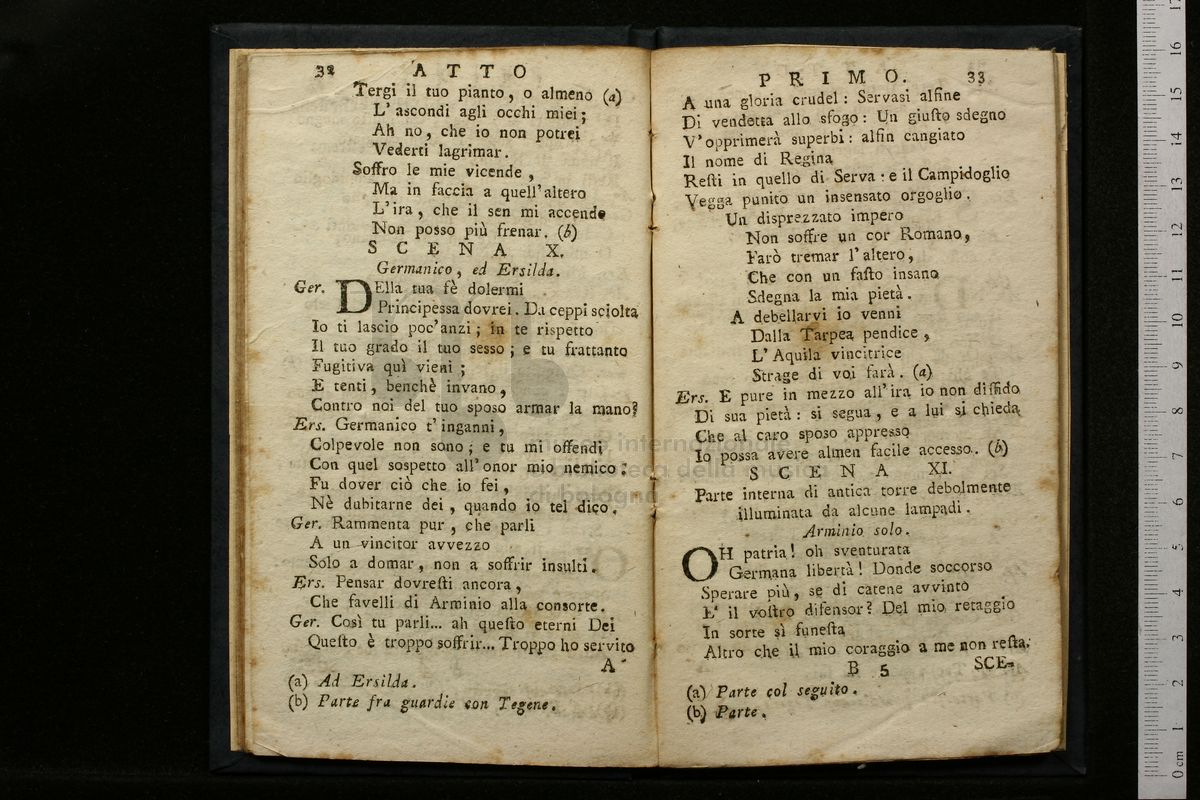 32 ATTO
Tergi il tuo pianto, o almeno (a)
L'ascondi agli occhi miei;
Ah no, che io non potrei
Vederti lagrimar.
Soffro le mie vicende,
Ma in faccia a quell'altero
L'ira, che il sen mi accende
Non posso più frenar. (b)
SCENA X.
Germanico, ed Ersilda.
Ger. DElla tua fè dolermi
Principessa dovrei. Da ceppi sciolta
Io ti lascio poc'anzi; in te rispetto
Il tuo grado il tuo sesso; e tu frattanto
Fugitiva quì vieni;
E tenti, benchè invano,
Contro noi del tuo sposo armar la mano?
Ers. Germanico t'inganni,
Colpevole non sono; e tu mi offendi
Con quel sospetto all'onor mio nemico:
Fu dover ciò che io fei,
Nè dubitarne dei, quando io tel dico.
Ger. Rammenta pur, che parli
A un vincitor avvezzo
Solo a domar, non a soffrir insulti.
Ers. Pensar dovreſti ancora,
Che favelli di Arminio alla consorte.
Ger. Così tu parli... ah queſto eterni Dei
Queſto è troppo soffrir... Troppo ho servito
A
(a) Ad Ersilda.
(b) Parte fra guardie con Tegene.
PRIMO. 33
A una gloria crudel: Servasi alfine
Di vendetta allo sfogo: Un giuſto sdegno
V'opprimerà superbi: alfin cangiato
Il nome di Regina
Reſti in quello di Serva: e il Campidoglio
Vegga punito un insensato orgoglio.
Un disprezzato impero
Non soffre un cor Romano,
Farò tremar l'altero,
Che con un faſto insano
Sdegna la mia pietà.
A debellarvi io venni
Dalla Tarpea pendice,
L'Aquila vincitrice
Strage di voi farà. (a)
Ers. E pure in mezzo all'ira io non diffido
Di sua pietà: si segua, e a lui si chieda
Che al caro sposo appresso
Io possa avere almen facile accesso. (b)
SCENA XI.
Parte interna di antica torre debolmente
illuminata da alcune lampadi.
Arminio solo.
OH patria! oh sventurata
Germana libertà! Donde soccorso
Sperare più, se di catene avvinto
E' il voſtro difensor? Del mio retaggio
In sorte sì funeſta
Altro che il mio coraggio a me non reſta.
B 5 SCE-
(a) Parte col seguito.
(b) Parte.
museo internazionale
e biblioteca della musica
di bologna
0 cm 1 2 3 4 5 6 7 8 9 10 11 12 13 14 15 16 17